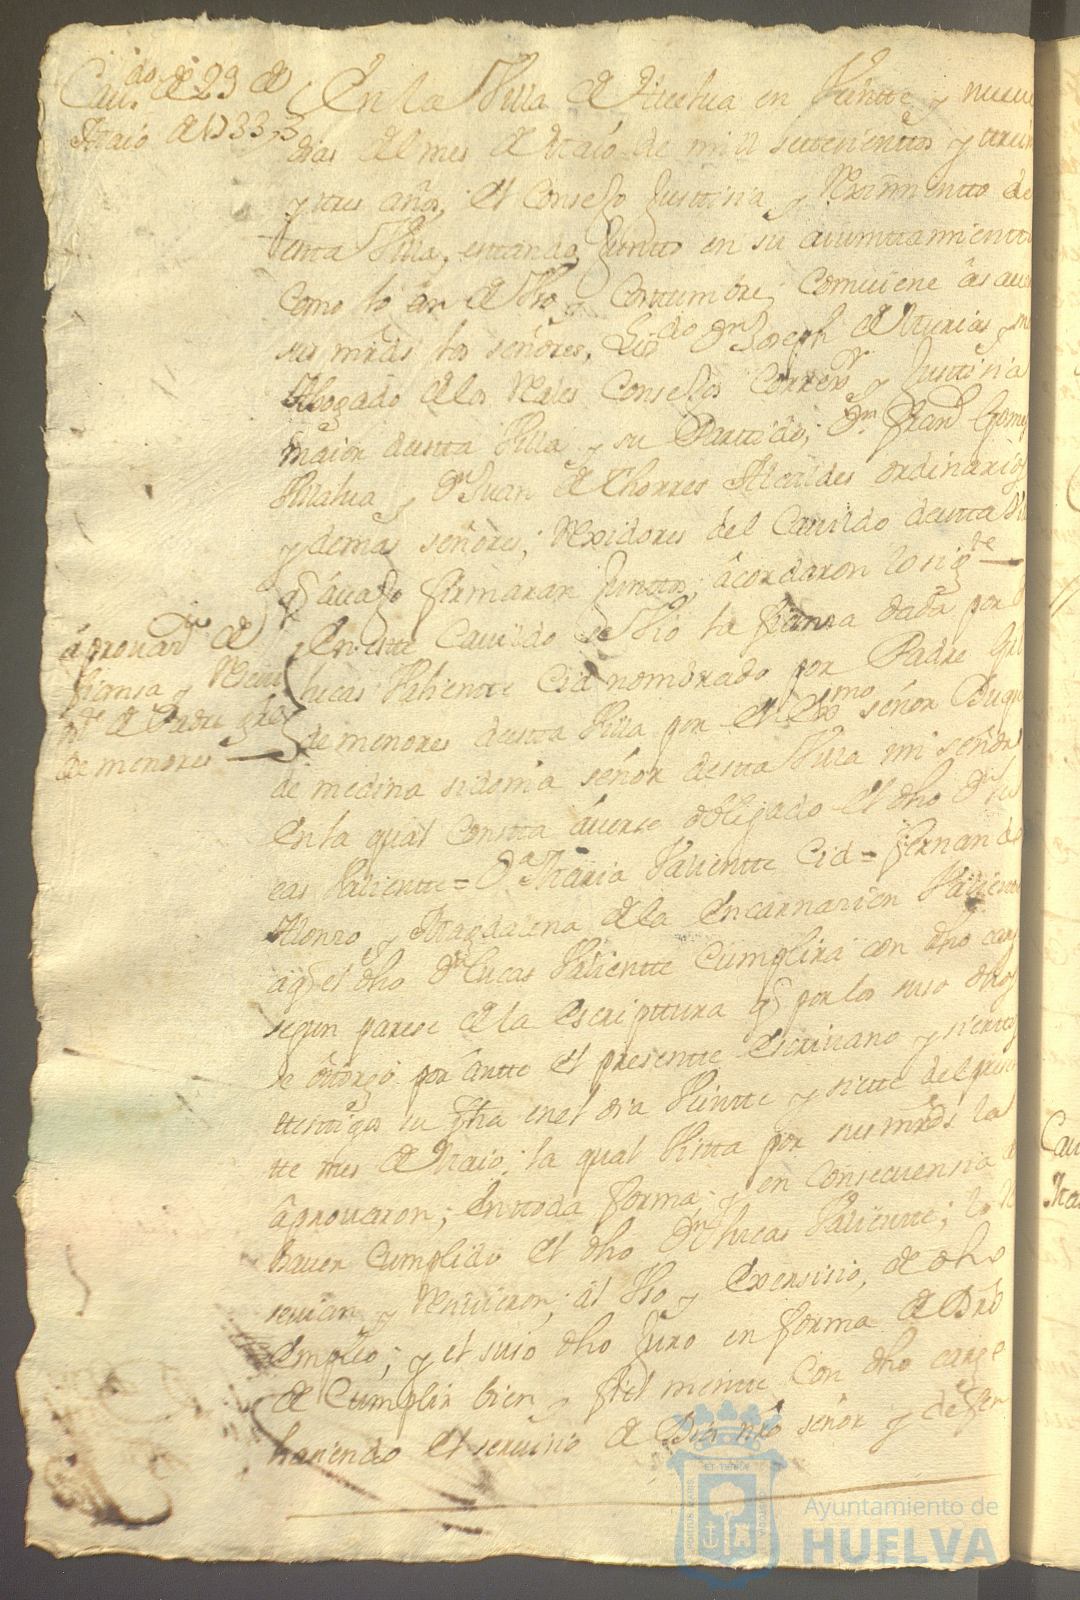 Cavdo de 29 de
Maio de 1733
En la Villa de Huelva en Veintte y nueve
dias del mes de Maio de mill settecienttos y trein
y tres años, el Consejo Justticia y Reximientto de
estta Villa, esttando Junttos en su aiunttamientto
como lo an de Uso y Costtumbre, comviene âsaver
sus mrds los señores, Lizdo Dn Joseph de Sturias
Abogado de los Rales Consejos Correxor y Justticia
maior de estta Villa y su Parttido; Dn Franco Gomez
Villalva y Dn Juan de Thorres Alcaldes ordinarios
y demas señores; Rexidores del Cavildo destta Vi
q âvajo firmaran Junttos; âcordaron lo sigte
âprovazon de
fiansa y Recivi
mto de Padre gral
de menores
En estte Cavildo se Vio la fianza dada por
Lucas Valientte Cid nombrado por Padre Gral
de menores destta Villa por el Exmo señor Duque
de medina sidonia señor destta Villa mi señor
En la qual constta âverse obligado el dho Dn Lu
cas Valientte = Da Maria Valientte Cid = Fernando
Alonzo y Magdalena de la Encarnazion Valientte
a q el dho Dn Lucas Valientte Cumplira con dho cargo
segun parese de la Escripttura q por los suso dhos
se ôttorgó por ântte el presentte Escrivano y siertos
testtigos su fha en el dia Veintte y siette del presen
tte mes de Maio; la qual Vistta por sus mrds la
âprovaron; En ttoda forma; y en consecuensia de
haver cumplido el dho Dn Lucas Valientte; lo re
sevian y Recivieron; al Uso y Exersisio, de dho
Empleo; y el suso dho Juro en forma de Dro
de Cumplir bien y fiel mentte con dho cargo
haciendo el servicio de Dios nro señor y defen
Ayuntamiento de
HUELVA